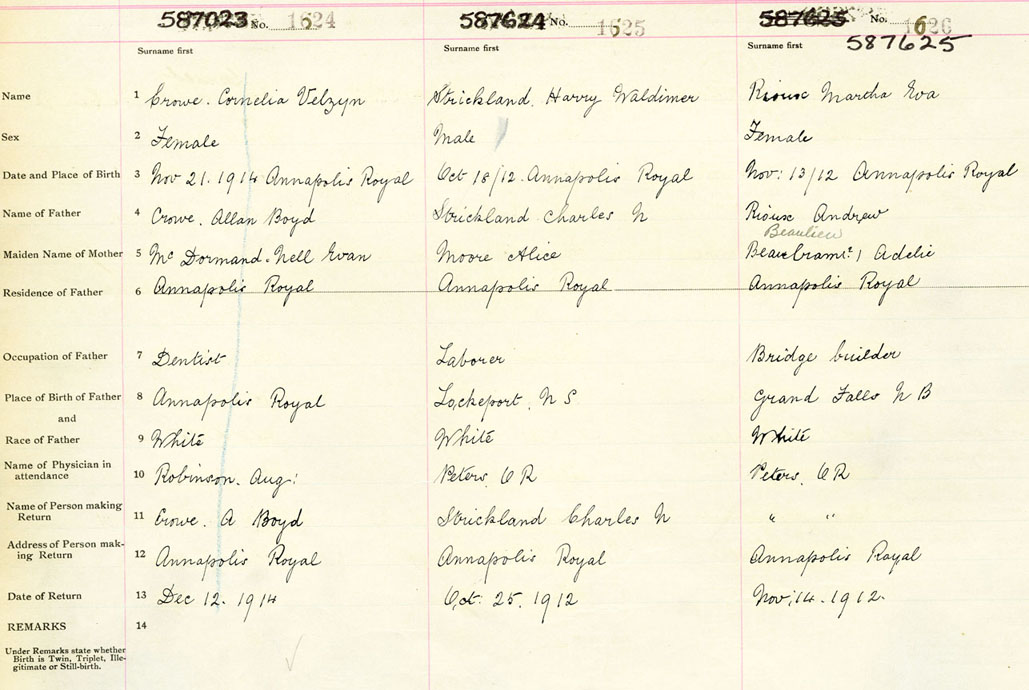 587023 No. 1624 587624 No. 1625 587623 No. 1626
587625
Surname first Surname first Surname first
Name 1 Crowe. Cornelia Velzyn Strickland, Harry Waldimer Rioux Martha Eva
Sex 2 Female Male Female
Date and Place of Birth 3 Nov 21. 1914 Annapolis Royal Oct 18/12. Annapolis Royal Nov: 13/12 Annapolis Royal
Name of Father 4 Crowe. Allan Boyd Strickland Charles N Rioux Andrew
Beaulieu
Maiden Name of Mother 5 Mc Dormand. Nell Evan Moore Alice Adelie
Residence of Father 6 Annapolis Royal Annapolis Royal Annapolis Royal
Occupation of Father 7 Dentist Laborer Bridge builder
Place of Birth of Father 8 Annapolis Royal Lockeport, N S Grand Falls N B
and
Race of Father 9 White White White
Name of Physician in
attendance 10 Robinson. Aug: Peters, O R Peters, O R
Name of Person making
Return 11 Crowe. A Boyd Strickland Charles N " "
Address of Person mak-
ing Return 12 Annapolis Royal Annapolis Royal Annapolis Royal
Date of Return 13 Dec 12. 1914 Oct. 25, 1912 Nov: 14. 1912.
REMARKS 14
Under Remarks state whether
Birth is Twin, Triplet, Ille-
gitimate or Still-birth.